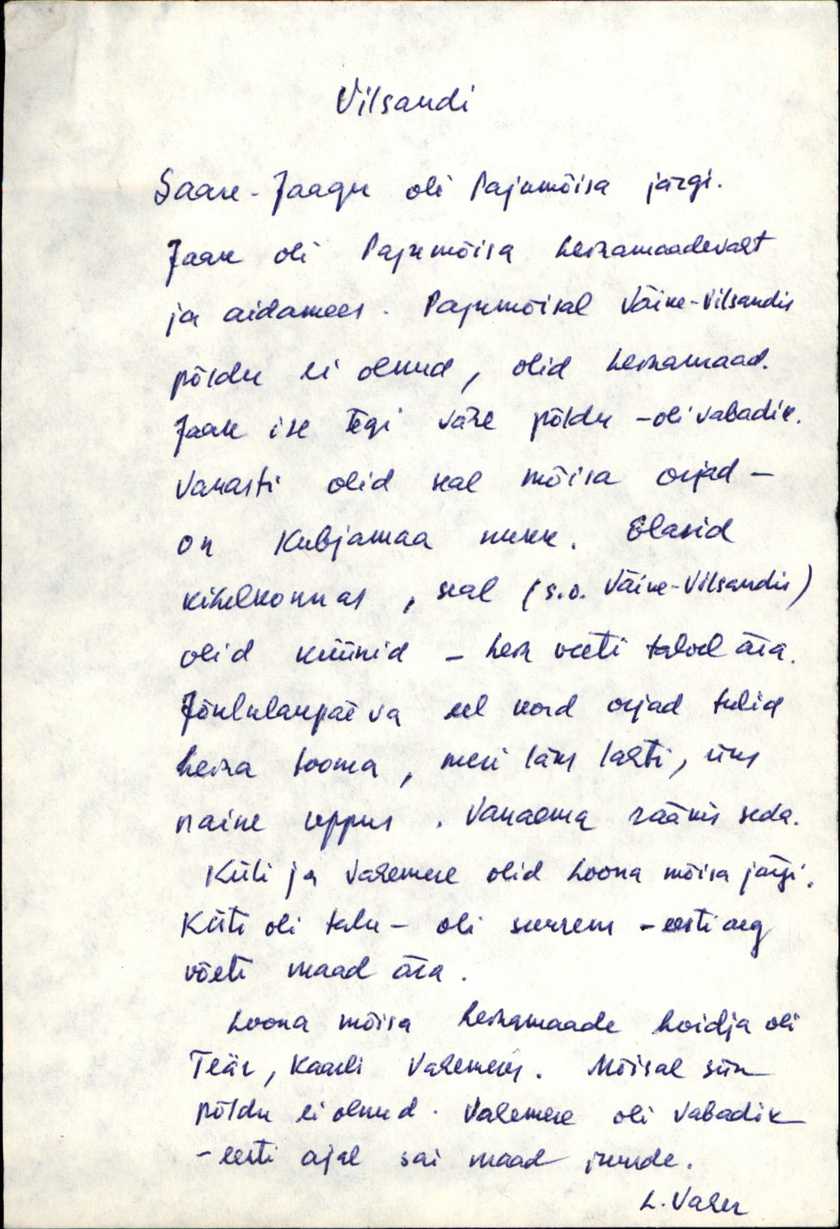 Vilsandi
Saare-Jaagu oli Pajumõisa järgi.
Jaak oli Pajumõisa heinamaadevaht
ja aidamees. Pajumõisal Väike-Vilsandis
põldu ei olnud, olid heinamaad.
Jaak ise tegi väke põldu - oli vabadik.
Vanasti olid seal mõisa orjad -
on Kubjamaa nukk. Elasid
kihelkonnas, seal (s.o. Väike-Vilsandis)
olid küünid - hein veeti talvel ära.
Jõululaupäeva eel kord orjad tulid
heina tooma, meri läks lahti, üks
naine uppus. Vanaema rääkis seda.
Küti ja Vahemere olid Loona mõisa järgi.
Küti oli talu - oli suurem - eesti aeg
võeti maad ära.
Loona mõisa heinamaade hoidja oli
Teär, Kaarli Vahemeres. Mõisal siin
põldu ei olnud. Vahemere oli vabadik
- eesti ajal sai maad juurde.